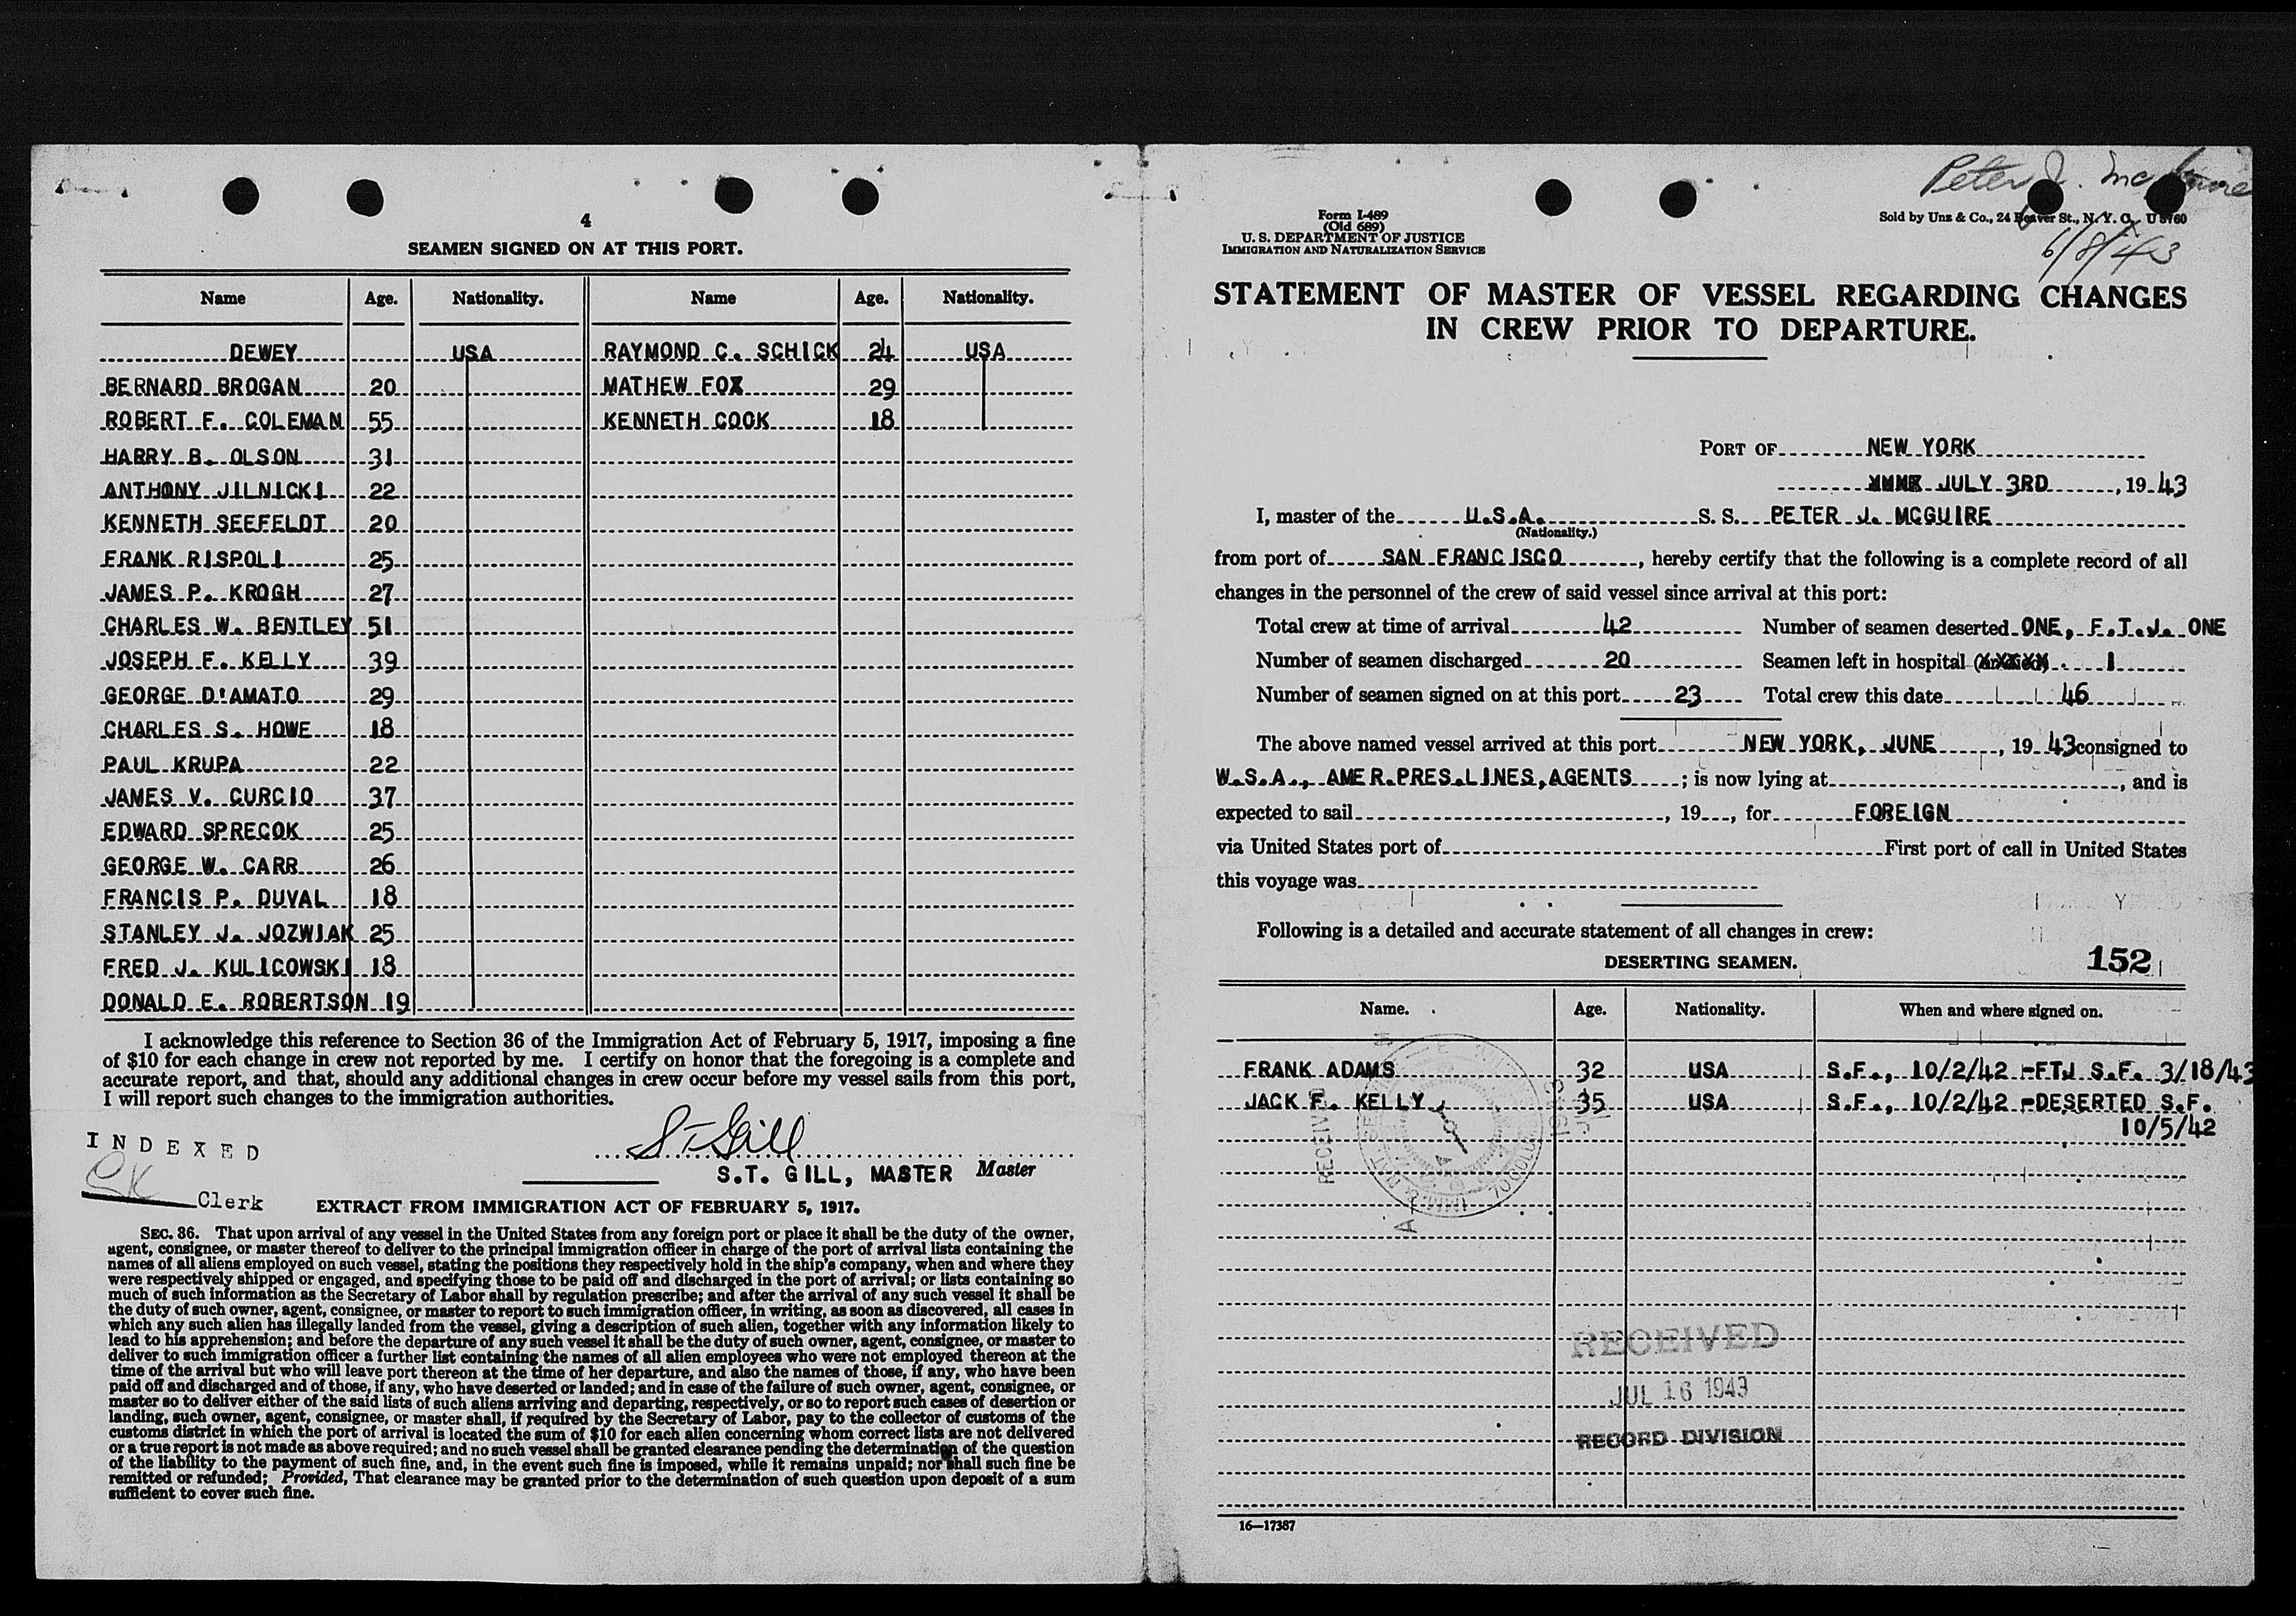 4
SEAMEN SIGNED ON AT THIS PORT.
Name Age. Nationality. Name Age. Nationality.
DEWEY USA RAYMOND C. SCHICK 24 USA
BERNARD BROGAN 20 MATHEW FOX 29
ROBERT F. COLEMAN 55 KENNETH COOK 18
HARRY B. OLSON 31
ANTHONY JILNICKI 22
KENNETH SEEFELDT 20
FRANK RISPOLI 25
JAMES P. KROGH 27
CHARLES W. BENTLEY 51
JOSEPH F. KELLY 39
GEORGE D'AMATO 29
CHARLES S. HOWE 18
PAUL KRUPA 22
JAMES V. CURCIO 37
EDWARD SPRECOK 25
GEORGE W. CARR 26
FRANCIS P. DUVAL 18
STANLEY J. JOZWIAK 25
FRED J. KULICOWSKI 18
DONALD E. ROBERTSON 19
I acknowledge this reference to Section 36 of the Immigration Act of February 5, 1917, imposing a fine
of $10 for each change in crew not reported by me. I certify on honor that the foregoing is a complete and
accurate report, and that, should any additional changes in crew occur before my vessel sails from this port,
I will report such changes to the immigration authorities.
S T Gill
S.T. GILL, MASTER Master
INDEXED
CK Clerk
EXTRACT FROM IMMIGRATION ACT OF FEBRUARY 5, 1917.
SEC. 36. That upon arrival of any vessel in the United States from any foreign port or place it shall be the duty of the owner,
agent, consignee, or master thereof to deliver to the principal immigration officer in charge of the port of arrival lists containing the
names of all aliens employed on such vessel, stating the positions they respectively hold in the ship's company, when and where they
were respectively shipped or engaged, and specifying those to be paid off and discharged in the port of arrival; or lists containing so
much of such information as the Secretary of Labor shall by regulation prescribe; and after the arrival of any such vessel it shall be
the duty of such owner, agent, consignee, or master to report to such immigration officer, in writing, as soon as discovered, all cases in
which any such alien has illegally landed from the vessel, giving a description of such alien, together with any information likely to
lead to his apprehension; and before the departure of any such vessel it shall be the duty of such owner, agent, consignee, or master to
deliver to such immigration officer a further list containing the names of all alien employees who were not employed thereon at the
time of the arrival but who will leave port thereon at the time of her departure, and also the names of those, if any, who have been
paid off and discharged and of those, if any, who have deserted or landed; and in case of the failure of such owner, agent, consignee, or
master so to deliver either of the said lists of such aliens arriving and departing, respectively, or so to report such cases of desertion or
landing, such owner, agent, consignee, or master shall, if required by the Secretary of Labor, pay to the collector of customs of the
customs district in which the port of arrival is located the sum of $10 for each alien concerning whom correct lists are not delivered
or a true report is not made as above required; and no such vessel shall be granted clearance pending the determination of the question
of the liability to the payment of such fine, and, in the event such fine is imposed, while it remains unpaid; nor shall such fine be
remitted or refunded; Provided, That clearance may be granted prior to the determination of such question upon deposit of a sum
sufficient to cover such fine.
Peter J. McGuire
Form I-489
(Old 689)
U. S. DEPARTMENT OF JUSTICE
IMMIGRATION AND NATURALIZATION SERVICE
Sold by Unz & Co., 24 Beaver St., N. Y. C.
6/8/43
STATEMENT OF MASTER OF VESSEL REGARDING CHANGES
IN CREW PRIOR TO DEPARTURE.
PORT OF NEW YORK
JULY 3RD, 19 43
I, master of the U.S.A. S. S. PETER J. MCGUIRE
(Nationality.)
from port of SAN FRANCISCO, hereby certify that the following is a complete record of all
changes in the personnel of the crew of said vessel since arrival at this port:
Total crew at time of arrival 42 Number of seamen deserted ONE, F.T.J. ONE
Number of seamen discharged 20 Seamen left in hospital 1
Number of seamen signed on at this port 23 Total crew this date 46
The above named vessel arrived at this port NEW YORK, JUNE, 19 43 consigned to
W.S.A., AMER.PRES.LINES,AGENTS; is now lying at , and is
expected to sail , 19 , for FOREIGN
via United States port of First port of call in United States
this voyage was
Following is a detailed and accurate statement of all changes in crew:
DESERTING SEAMEN. 152
Name. Age. Nationality. When and where signed on.
FRANK ADAMS 32 USA S.F., 10/2/42 -FTJ S.F. 3/18/43
JACK F. KELLY 35 USA S.F., 10/2/42 -DESERTED S.F.
10/5/42
RECEIVED
RECEIVED
JUL 16 1943
RECORD DIVISION
16—17387